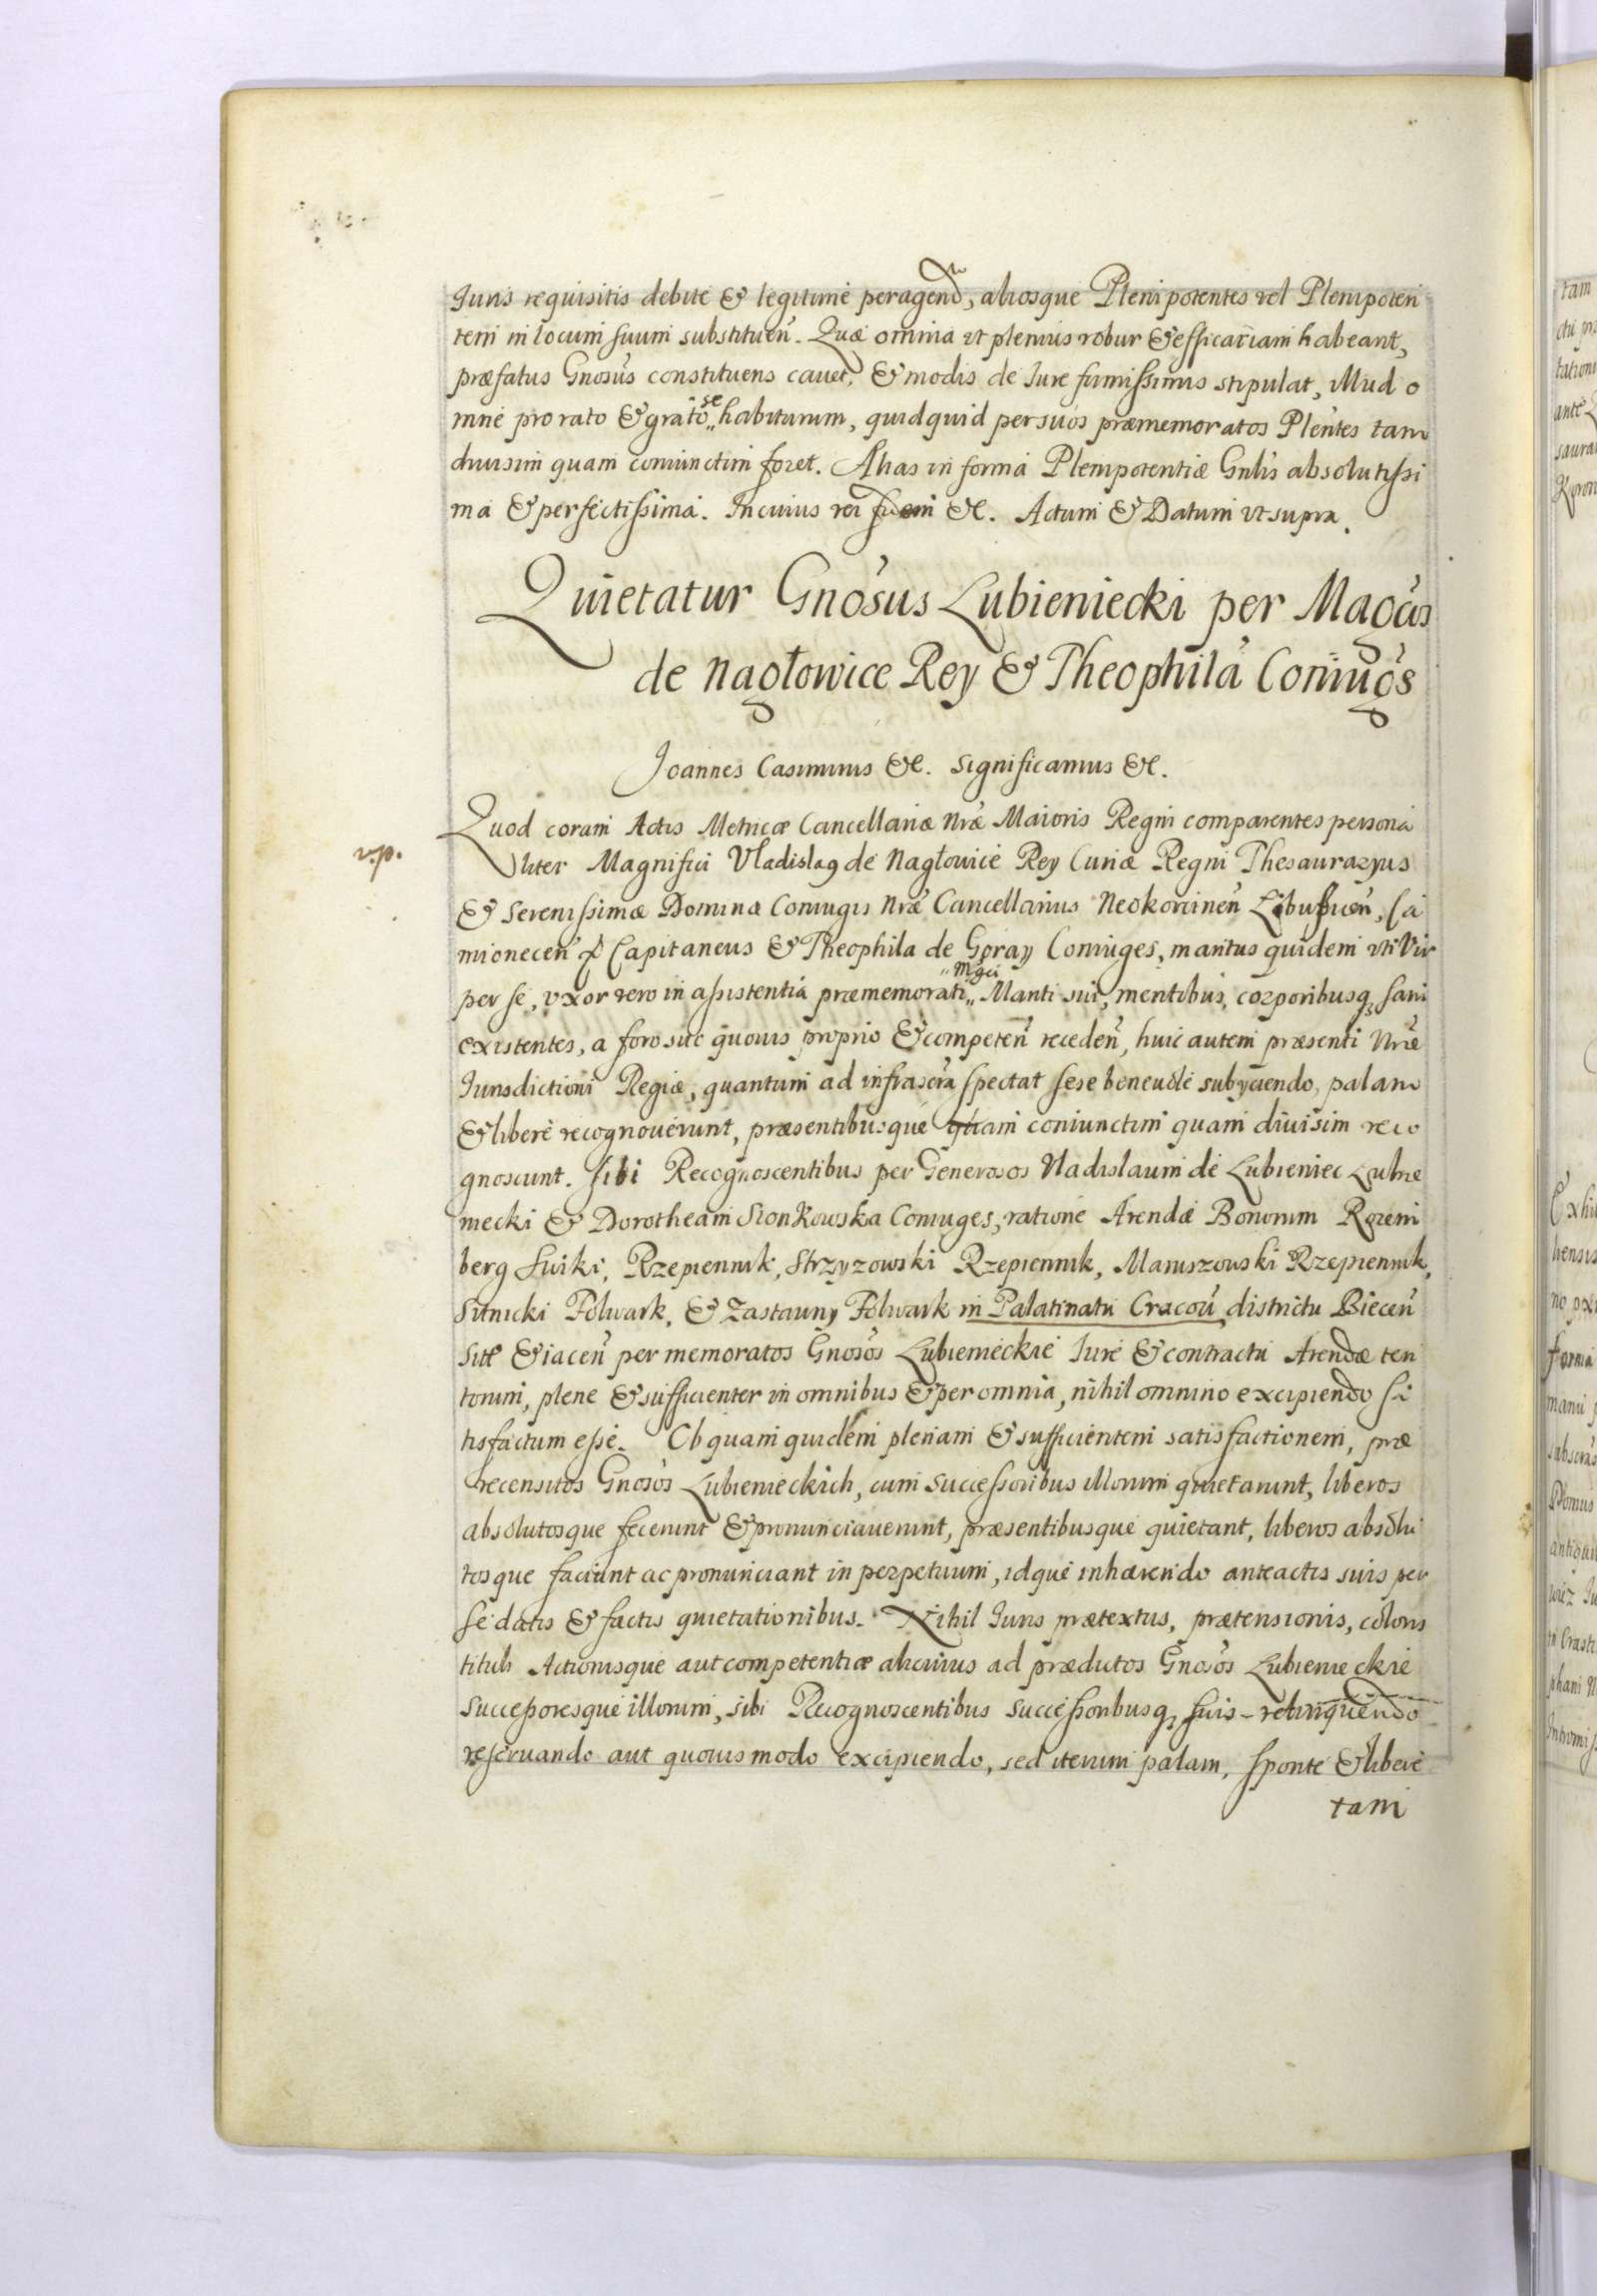 Iuris requisitis debite & legitime peragend, aliosque Plenipotentes vel Plenipoten
tem in locum suum substituen. Quæ omnia vt plenius robur & efficatiam habeant,
præfatus Gnosus constituens cauet, & modis de Iure firmissimis stipulat, illud o
mne pro rato & grato se habiturum, quidquid per suos præmemoratos Plentes tam
diuisim quam coniunctim foret. Alias in forma Plenipotentiæ Gnlis absolutissi
ma & perfectissima. In cuius rei fidem &c. Actum & Datum vt supra.
Quietatur Gnosus Lubieniecki per Magcos
de Nagłowice Rey & Theophila Coniugs
Joannes Casimirus &c. Significamus &c.
Quod coram Actis Metricæ Cancellariæ Nræ Maioris Regni comparentes persona
v.p.
liter Magnifici Vladislaq de Nagłowice Rey Curiæ Regni Thesaurarius
& Serenissimæ Dominæ Coniugis Nræ Cancellarius Neokorcinen Libussien, Ca
mionecen q Capitaneus & Theophila de Goray Coniuges, maritus quidem vti Vir
per se, vxor vero in assistentia præmemorati Mgci Mariti sui, mentibus, corporibusq sani
existentes, a foro suo quouis proprio & competen receden, huic autem præsenti Nræ
Iurisdictioni Regiæ, quantum ad infrascra spectat sese beneuole subyciendo, palam
& libere recognouerunt, præsentibusque tam coniunctim quam diuisim reco
gnoscunt. Sibi Recognoscentibus per Generosos Vladislaum de Lubieniec Lubie
niecki & Dorotheam Sionkowska Coniuges, ratione Arendæ Bonorum Rozem
berg Suiki, Rzepiennik, Strzyzowski Rzepiennik, Maruszowski Rzepiennik,
Sitnicki Folwark, & Zastawny Folwark in Palatinatu Cracou, districtu Biecen
Site & iacen per memoratos Gnosos Lubienieckie Iure & contractu Arendæ ten
torum, plene & sufficienter in omnibus & per omnia, nihil omnino excipiendo sa
tisfactum esse. Ob quam quidem plenam & sufficientem satisfactionem, præ
recensitos Gnosos Lubienieckich, cum Successoribus illorum quietarunt, liberos
absolutosque fecerunt & pronunciauerunt, præsentibusque quietant, liberos absolu
tosque faciunt ac pronunciant in perpetuum, idque inhærendo anteactis suis per
se datis & factis quietationibus. Nihil Iuris prætextus, prætensionis, coloris
tituli Actionisque aut competentiæ alicuius ad prædictos Gnosos Lubienieckie
Successoresque illorum, sibi Recognoscentibus Successoribusq suis relinquendo
reseruando aut quouis modo excipiendo, sed iterum palam, sponte & libere
tam